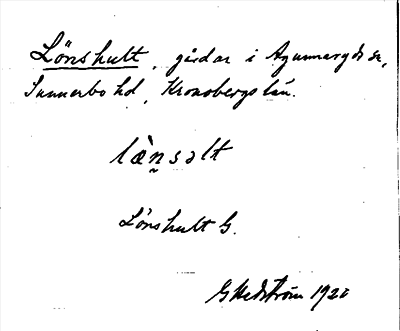 Lönshult, gårdar i Agunnaryds sn,
Sunnerbo hd, Kronobergs län.
lὰn̰səlt
Lönshult G.
G Hedström 1920